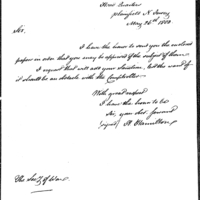 Head Quarters
Plainfield N Jersey
May 26th 1800
Sir,
I have the honor to send you the enclosed
papers in order that you may be apprised of the subject of them.
I request that will add your Decision, but the wound of
it should be an obstacle with the Comptroller.
With great respect
I have the honor to be
Sir, your obet Servant
(signed) A Hamilton
The Secy of War